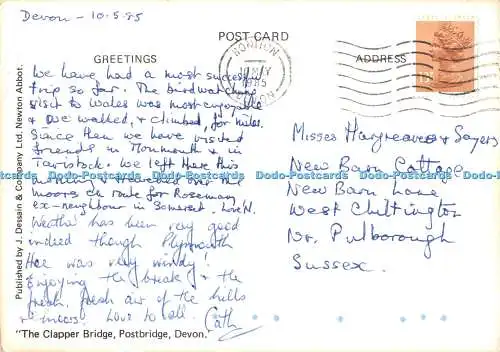 Devon - 10.5.85
POST CARD
GREETINGS
ADDRESS
HONITON
10 MY
1985
DEVON
We have had a most successful
trip so far. The birdwatching
visit to Wales was most enjoyable
& we walked, & climbed, for miles.
Since then we have visited
friends in Monmouth & in
Tavistock. We left there this
morning & travelled over the
moors en route for Rosemary
ex-neighbour in Somerset. Love N.
Weather has been very good
indeed though Plymouth
Hoe was very windy!
Enjoying the break & the
fresh, fresh air of the hills
& moors. Love to all. Cath
Misses Hargreaves & Sayers
New Barn Cottage
New Barn Lane
West Chiltington
Nr. Pulborough
Sussex.
Published by J. Dessain & Company Ltd. Newton Abbot.
"The Clapper Bridge, Postbridge, Devon."
Dodo-Postcards Dodo-Postcards Dodo-Postcards Dodo-Postcards Dodo-Postcards Dodo-Postcards